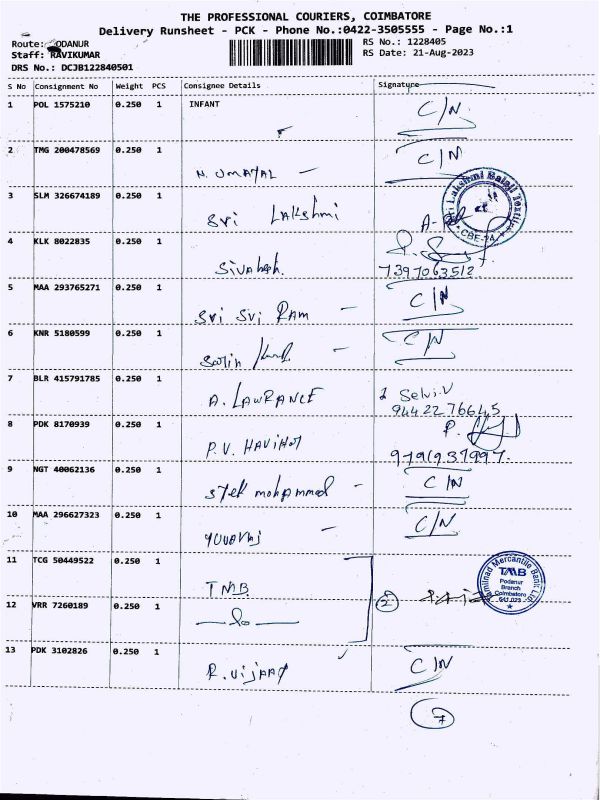 THE PROFESSIONAL COURIERS, COIMBATORE
Delivery Runsheet - PCK - Phone No.:0422-3505555 - Page No.:1
Route: ODANUR
RS No.: 1228405
Staff: RAVIKUMAR
RS Date: 21-Aug-2023
DRS No.: DCJB122840501
S No Consignment No Weight PCS Consignee Details Signature
1 POL 1575210 0.250 1 INFANT C/N
2 TMG 200478569 0.250 1 N. UMAYAL C/N
3 SLM 326674189 0.250 1 Sri LAKShmi
Sri Lakshmi Balaji Textiles
CBE-24
4 KLK 8022835 0.250 1
7397063512
5 MAA 293765271 0.250 1 Sri Sri RAM C/N
6 KNR 5180599 0.250 1 C/N
7 BLR 415791785 0.250 1 A. LAWRANCE Selvi.V
9442276645
8 PDK 8170939 0.250 1 P.V.
9791937997.
9 NGT 40062136 0.250 1 mohammed C/N
10 MAA 296627323 0.250 1 C/N
11 TCG 50449522 0.250 1 TMB
Tamilnad Mercantile Bank Ltd
TMB
Podanur
Branch
Coimbatore
641 023
12 VRR 7260189 0.250 1 2
13 PDK 3102826 0.250 1 C/N
7